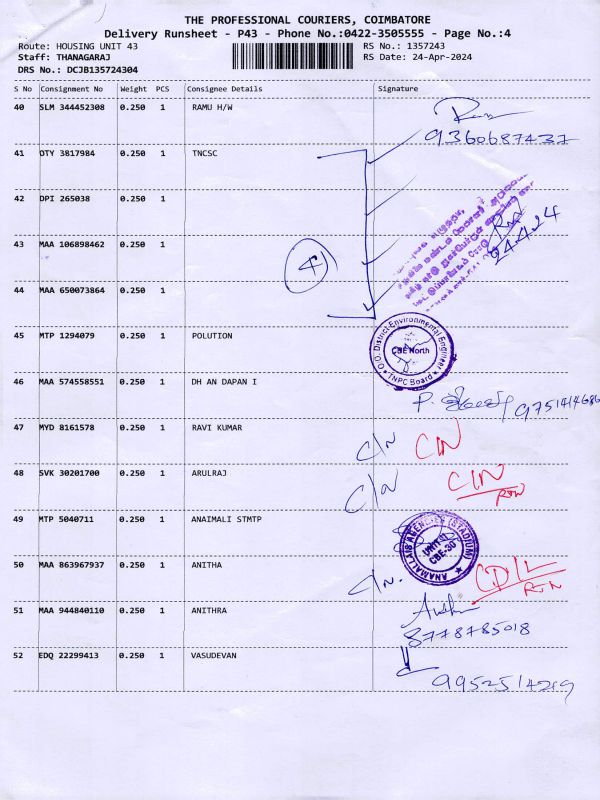 THE PROFESSIONAL COURIERS, COIMBATORE
Delivery Runsheet - P43 - Phone No.:0422-3505555 - Page No.:4
Route: HOUSING UNIT 43 RS No.: 1357243
Staff: THANAGARAJ RS Date: 24-Apr-2024
DRS No.: DCJB135724304
S No Consignment No Weight PCS Consignee Details Signature
40 SLM 344452308 0.250 1 RAMU H/W
9360687437
41 OTY 3817984 0.250 1 TNCSC
42 DPI 265038 0.250 1
24.4.24
43 MAA 106898462 0.250 1
4
44 MAA 650073864 0.250 1
45 MTP 1294079 0.250 1 POLUTION
O/O. District Environmental Engineer
CBE North
TNPC Board
46 MAA 574558551 0.250 1 DH AN DAPAN I
9751414686
47 MYD 8161578 0.250 1 RAVI KUMAR C/N C/N
48 SVK 30201700 0.250 1 ARULRAJ C/N C/N
49 MTP 5040711 0.250 1 ANAIMALI STMTP
ANAMALLAIS AGENCIES (STADIUM)
UNIT-II
CBE-30
50 MAA 863967937 0.250 1 ANITHA C/N.
51 MAA 944840110 0.250 1 ANITHRA
8778785018
52 EDQ 22299413 0.250 1 VASUDEVAN
9952514219